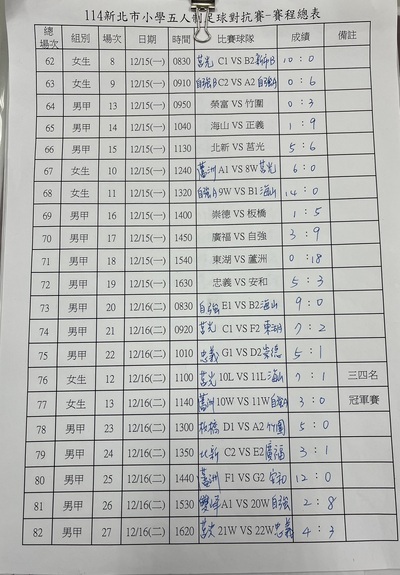 114新北市小學五人制足球對抗賽-賽程總表
總場次 組別 場次 日期 時間 比賽球隊 成績 備註
62 女生 8 12/15(一) 0830 莒光 C1 VS B2 10:0
63 女生 9 12/15(一) 0910 自強B C2 VS A2 自強A 0:6
64 男甲 13 12/15(一) 0950 榮富 VS 竹圍 0:3
65 男甲 14 12/15(一) 1040 海山 VS 正義 1:9
66 男甲 15 12/15(一) 1130 北新 VS 莒光 5:6
67 女生 10 12/15(一) 1240 蘆洲 A1 VS 8W 莒光 6:0
68 女生 11 12/15(一) 1320 自強A 9W VS B1 海山 14:0
69 男甲 16 12/15(一) 1400 崇德 VS 板橋 1:5
70 男甲 17 12/15(一) 1450 廣福 VS 自強 3:9
71 男甲 18 12/15(一) 1540 東湖 VS 蘆洲 0:18
72 男甲 19 12/15(一) 1630 忠義 VS 安和 5:3
73 男甲 20 12/16(二) 0830 自強 E1 VS B2 海山 9:0
74 男甲 21 12/16(二) 0920 莒光 C1 VS F2 東湖 7:2
75 男甲 22 12/16(二) 1010 忠義 G1 VS D2 崇德 5:1
76 女生 12 12/16(二) 1100 莒光 10L VS 11L 海山 7:1 三四名
77 女生 13 12/16(二) 1140 蘆洲 10W VS 11W 自強A 3:0 冠軍賽
78 男甲 23 12/16(二) 1300 板橋 D1 VS A2 竹圍 5:0
79 男甲 24 12/16(二) 1350 北新 C2 VS E2 廣福 3:1
80 男甲 25 12/16(二) 1440 蘆洲 F1 VS G2 安和 12:0
81 男甲 26 12/16(二) 1530 A1 VS 20W 自強 2:8
82 男甲 27 12/16(二) 1620 莒光 21W VS 22W 忠義 4:3